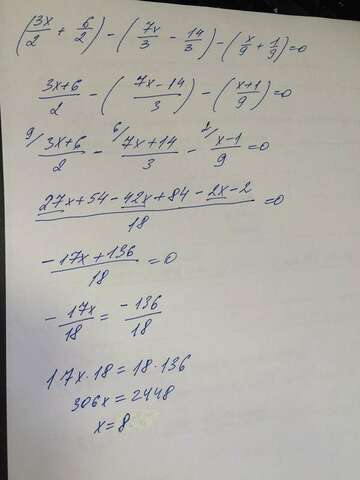 (3x/2 + 6/2) - (7x/3 - 14/3) - (x/9 + 1/9) = 0
3x+6/2 - (7x-14/3) - (x+1/9) = 0
9/ 3x+6/2 - 6/ 7x+14/3 - 2/ x-1/9 = 0
27x+54-42x+84-2x-2/18 = 0
-17x+136/18 = 0
-17x/18 = -136/18
17x·18 = 18·136
306x = 2448
x = 8